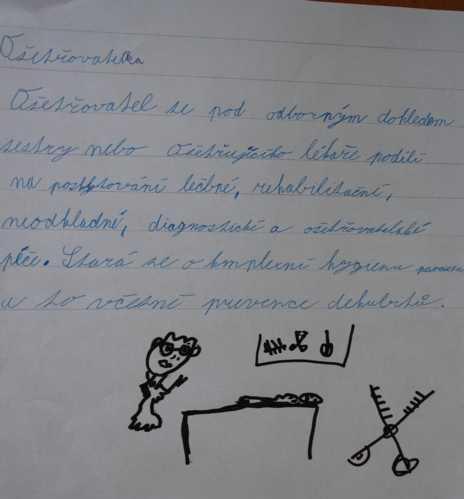 Ošetřovatelka
Ošetřovatel se pod odborným dohledem
sestry nebo Ošetřujícího lékaře podílí
na poskytování léčebné, rehabilitační,
neodkladné, diagnostické a ošetřovatelské
péče. Stará se o komplexní hygienu
a to včetně prevence dekubitů.